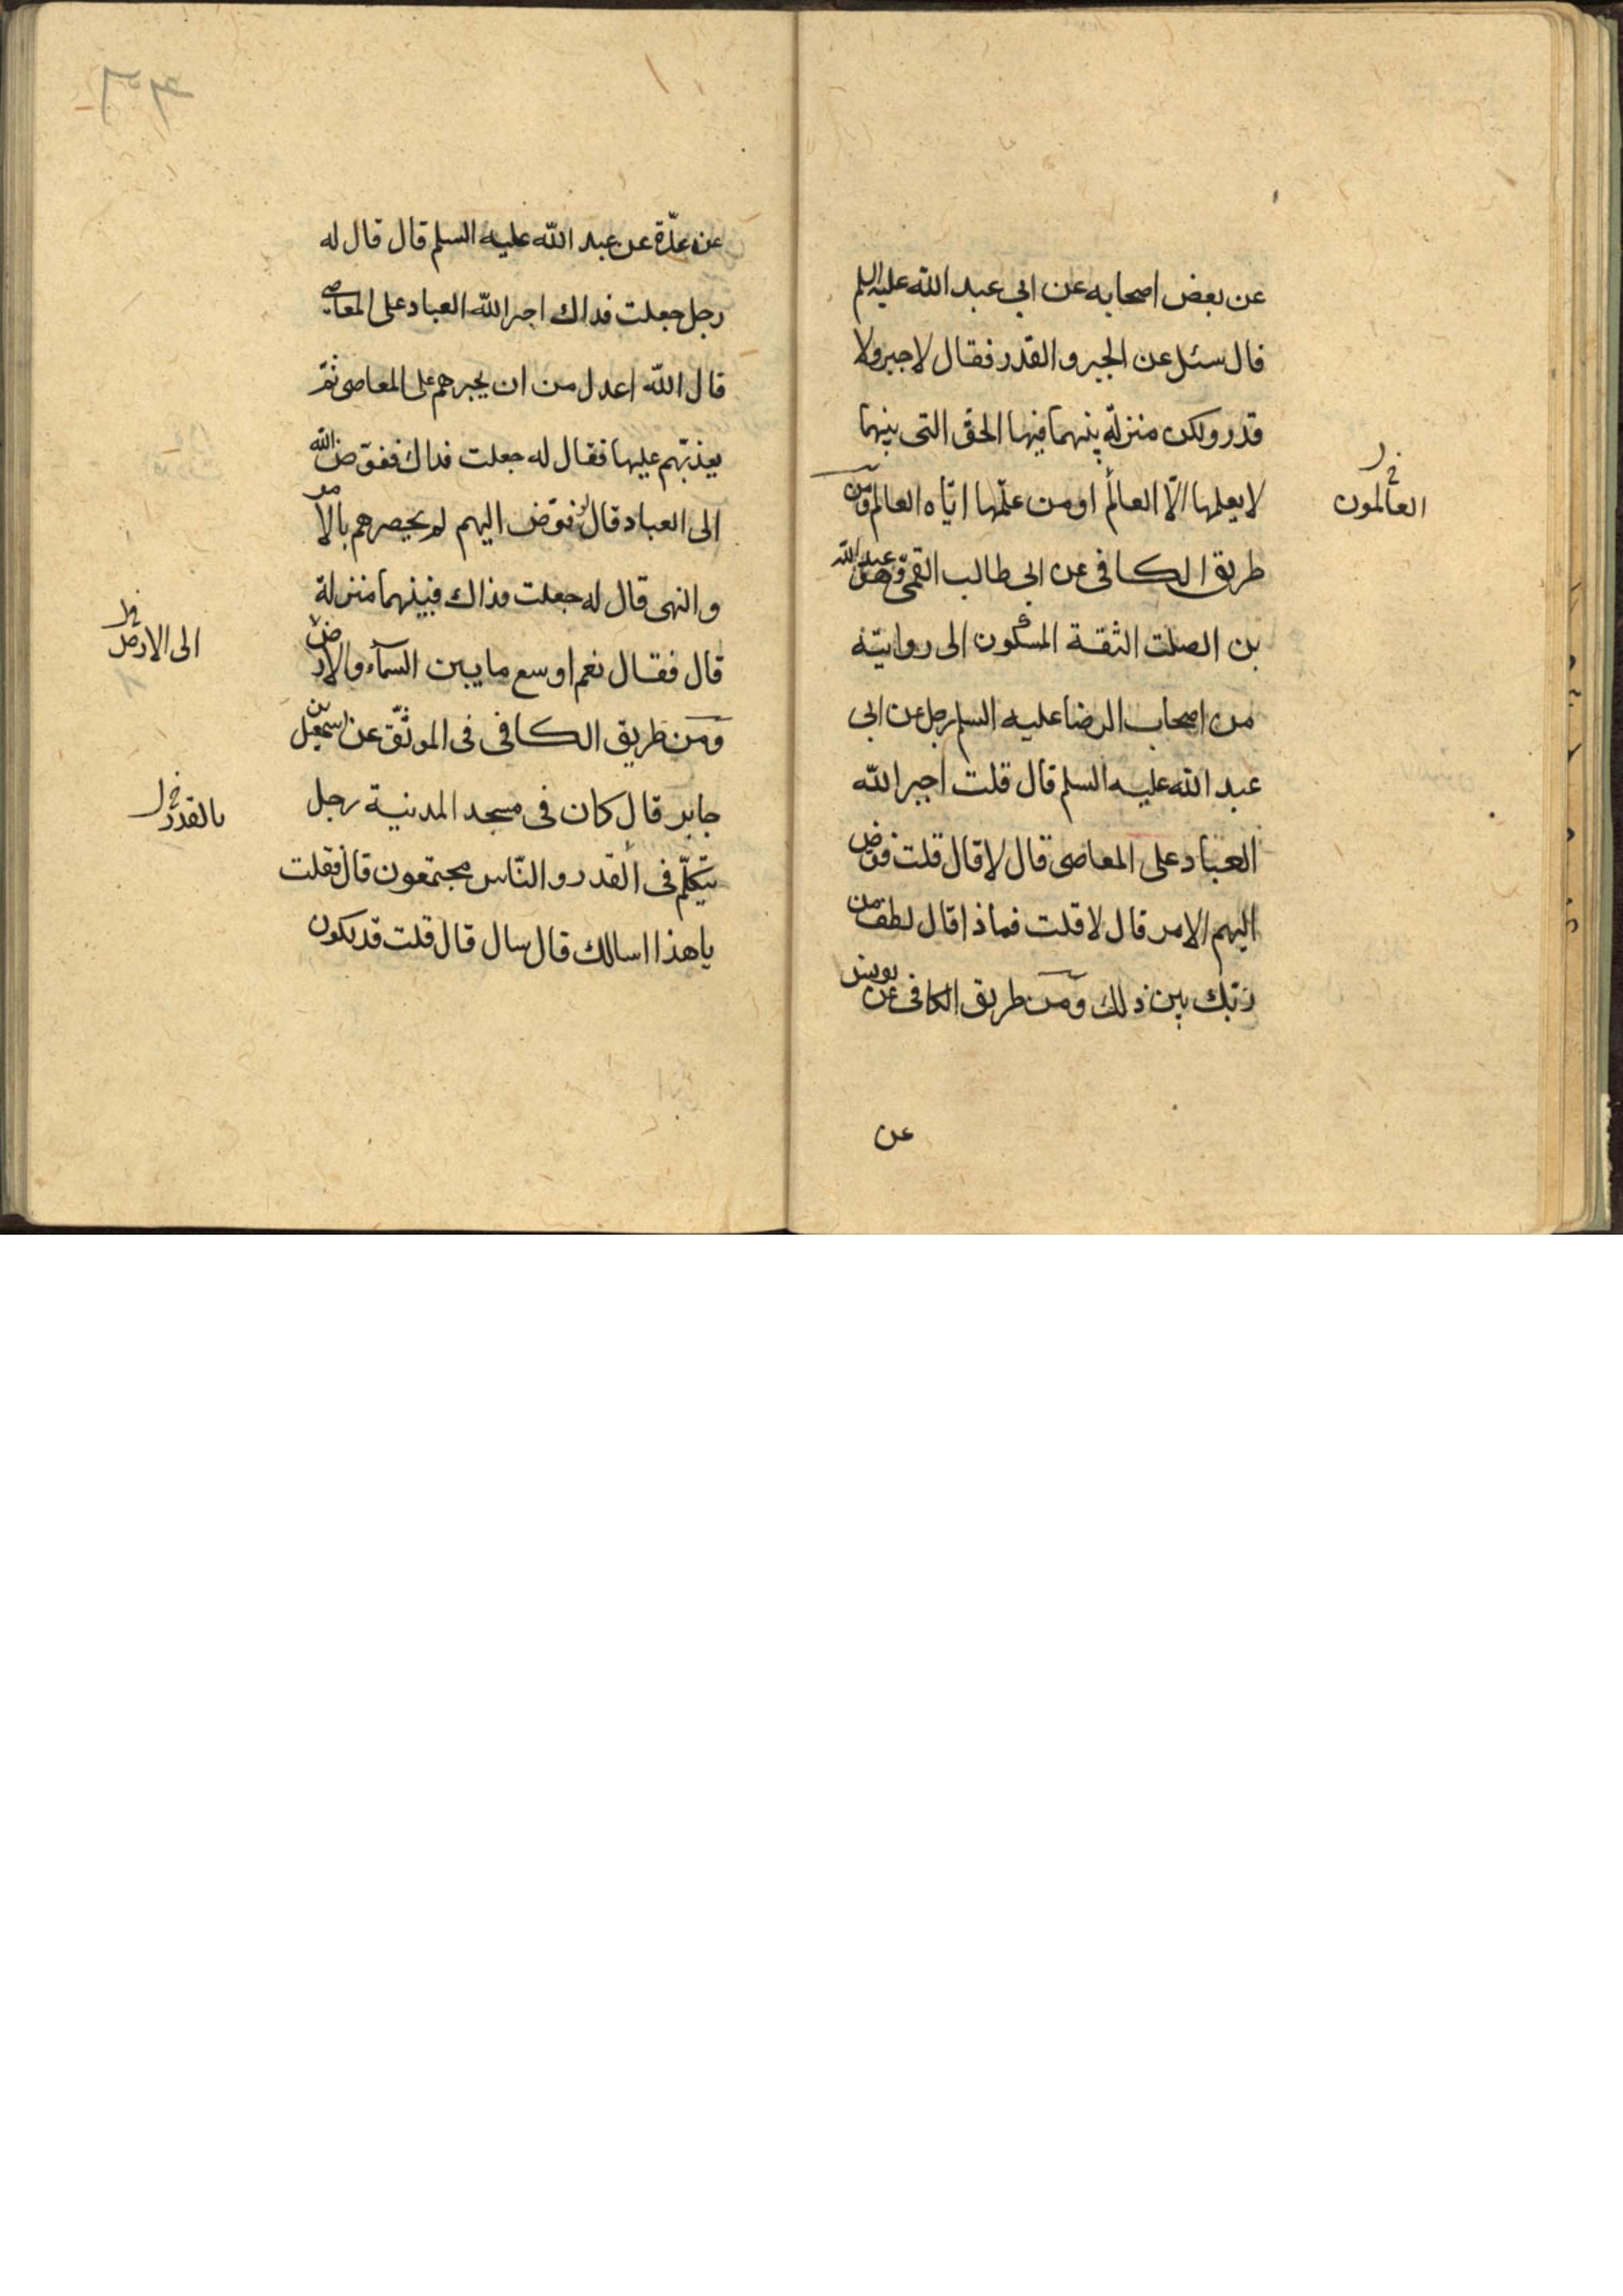 عن بعض اصحابه عن ابي عبد الله عليه السلم
قال سئل عن الجبر و القدر فقال لا جبر ولا
قدر ولكن منزلة بينهما فيها الحق التى بينهما
لا يعلمها الّا العالم او من علّمها ايّاه العالم ومن
العالمون
طريق الكافى عن ابى طالب القمى وهو عبد الله
بن الصلت الثقة المسكون الى روايته
من اصحاب الرضا عليه السلم رجل عن ابى
عبد الله عليه السلم قال قلت اجبر الله
العباد على المعاصى قال لا قال قلت فوّض
اليهم الامر قال لا قلت فماذا قال لطف من
ربّك بين ذلك ومن طريق الكافى عن يونس
عن
عن عدّة عن عبد الله عليه السلم قال قال له
رجل جعلت فداك اجبر الله العباد على المعاصى
قال الله اعدل من ان يجبرهم على المعاصى ثم
يعذبّهم عليها فقال له جعلت فداك ففوّض الله
الى العباد قال لو فوّض اليهم لم يحصرهم بالامر
و النهى قال له جعلت فداك فبينهما منزلة
قال فقال نعم اوسع ما بين السمآء والارض
الى الارض
ومن طريق الكافى فى الموثّق عن اسمعيل بن
جابر قال كان فى مسجد المدينة رجل
بالقدر
يتكلّم فى القدر و النّاس مجتمعون قال فقلت
يا هذا اسالك قال سال قال قلت قد يكون